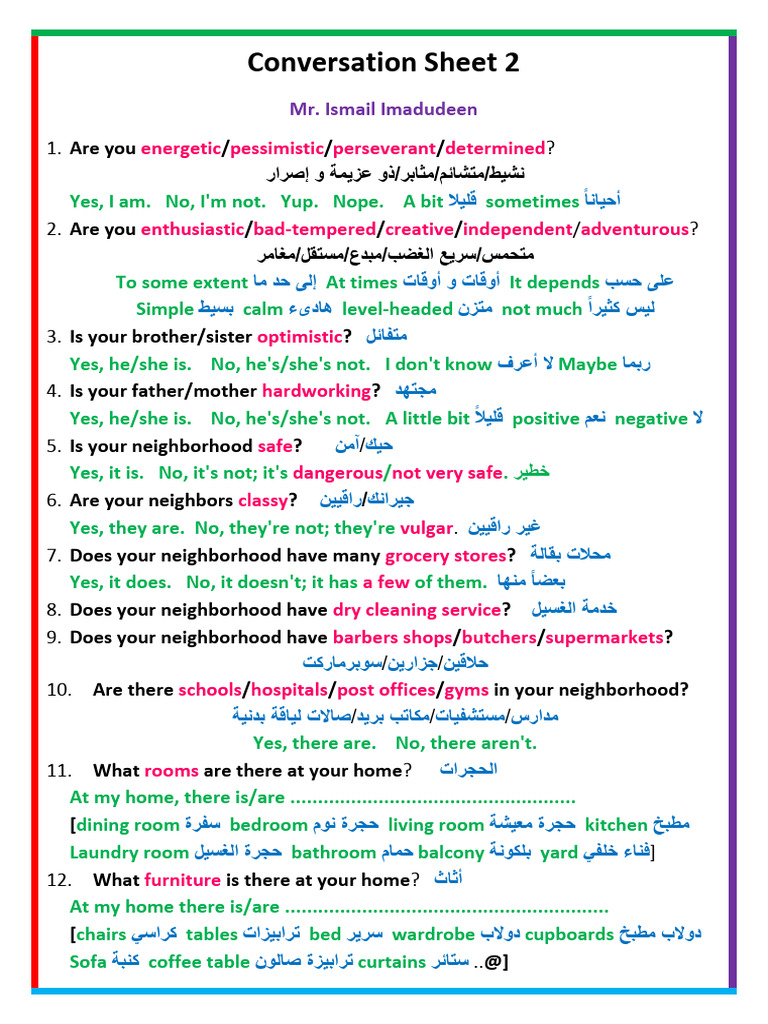 Conversation Sheet 2
Mr. Ismail Imadudeen
1. Are you energetic/pessimistic/perseverant/determined?
نشيط/متشائم/مثابر/ذو عزيمة و إصرار
Yes, I am. No, I'm not. Yup. Nope. A bit قليلا sometimes أحياناً
2. Are you enthusiastic/bad-tempered/creative/independent/adventurous?
متحمس/سريع الغضب/مبدع/مستقل/مغامر
To some extent إلى حد ما At times أوقات و أوقات It depends على حسب
Simple بسيط calm هادىء level-headed متزن not much ليس كثيراً
3. Is your brother/sister optimistic? متفائل
Yes, he/she is. No, he's/she's not. I don't know لا أعرف Maybe ربما
4. Is your father/mother hardworking? مجتهد
Yes, he/she is. No, he's/she's not. A little bit قليلاً positive نعم negative لا
5. Is your neighborhood safe? حيك/آمن
Yes, it is. No, it's not; it's dangerous/not very safe. خطير
6. Are your neighbors classy? جيرانك/راقيين
Yes, they are. No, they're not; they're vulgar. غير راقيين
7. Does your neighborhood have many grocery stores? محلات بقالة
Yes, it does. No, it doesn't; it has a few of them. بعضاً منها
8. Does your neighborhood have dry cleaning service? خدمة الغسيل
9. Does your neighborhood have barbers shops/butchers/supermarkets?
حلاقين/جزارين/سوبرماركت
10. Are there schools/hospitals/post offices/gyms in your neighborhood?
مدارس/مستشفيات/مكاتب بريد/صالات لياقة بدنية
Yes, there are. No, there aren't.
11. What rooms are there at your home? الحجرات
At my home, there is/are ....................................................
[dining room سفرة bedroom حجرة نوم living room حجرة معيشة kitchen مطبخ
Laundry room حجرة الغسيل bathroom حمام balcony بلكونة yard فناء خلفي]
12. What furniture is there at your home? أثاث
At my home there is/are ...........................................................
[chairs كراسي tables ترابيزات bed سرير wardrobe دولاب cupboards دولاب مطبخ
Sofa كنبة coffee table ترابيزة صالون curtains ستائر ..@]